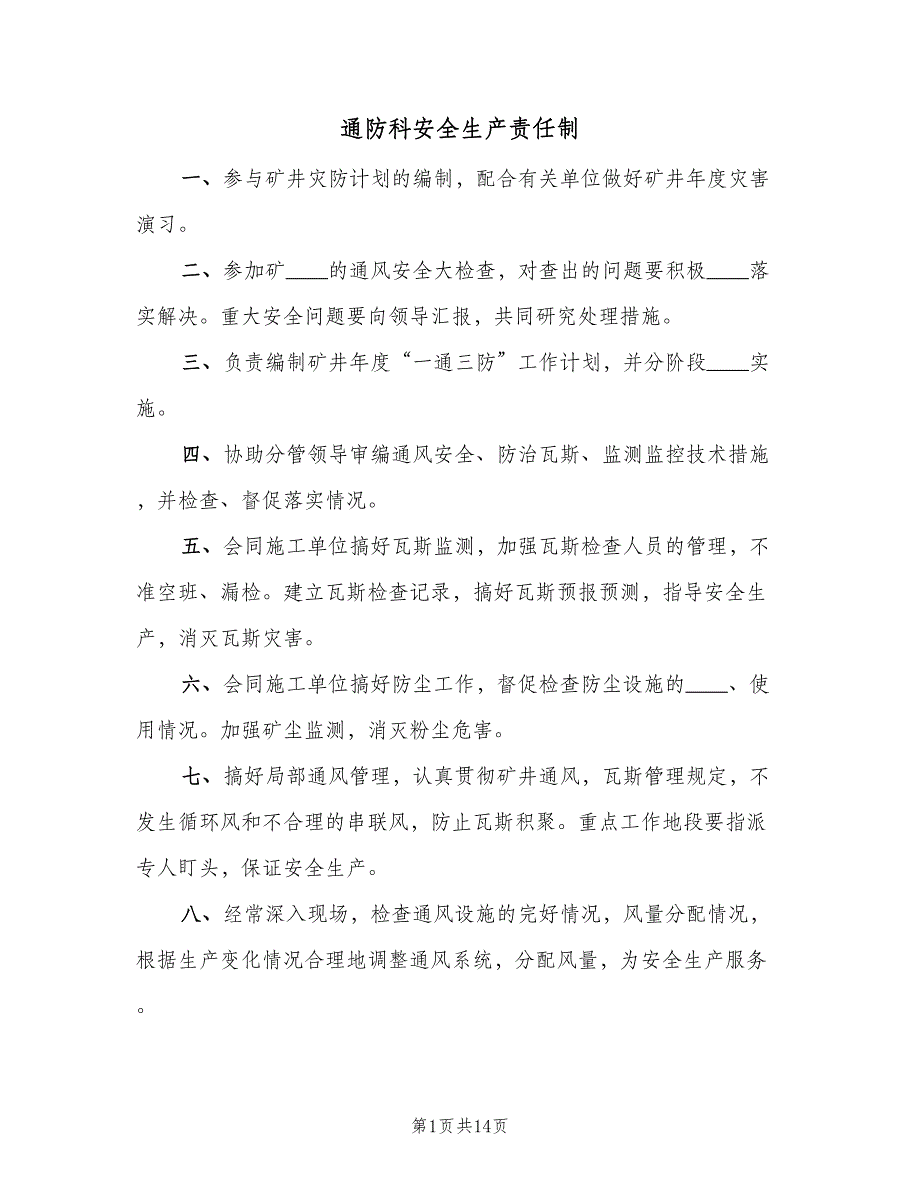 通防科安全生产责任制
一、参与矿井灾防计划的编制，配合有关单位做好矿井年度灾害
演习。
二、参加矿____的通风安全大检查，对查出的问题要积极____落
实解决。重大安全问题要向领导汇报，共同研究处理措施。
三、负责编制矿井年度“一通三防”工作计划，并分阶段____实
施。
四、协助分管领导审编通风安全、防治瓦斯、监测监控技术措施
，并检查、督促落实情况。
五、会同施工单位搞好瓦斯监测，加强瓦斯检查人员的管理，不
准空班、漏检。建立瓦斯检查记录，搞好瓦斯预报预测，指导安全生
产，消灭瓦斯灾害。
六、会同施工单位搞好防尘工作，督促检查防尘设施的____、使
用情况。加强矿尘监测，消灭粉尘危害。
七、搞好局部通风管理，认真贯彻矿井通风，瓦斯管理规定，不
发生循环风和不合理的串联风，防止瓦斯积聚。重点工作地段要指派
专人盯头，保证安全生产。
八、经常深入现场，检查通风设施的完好情况，风量分配情况，
根据生产变化情况合理地调整通风系统，分配风量，为安全生产服务
。
第1页共14页